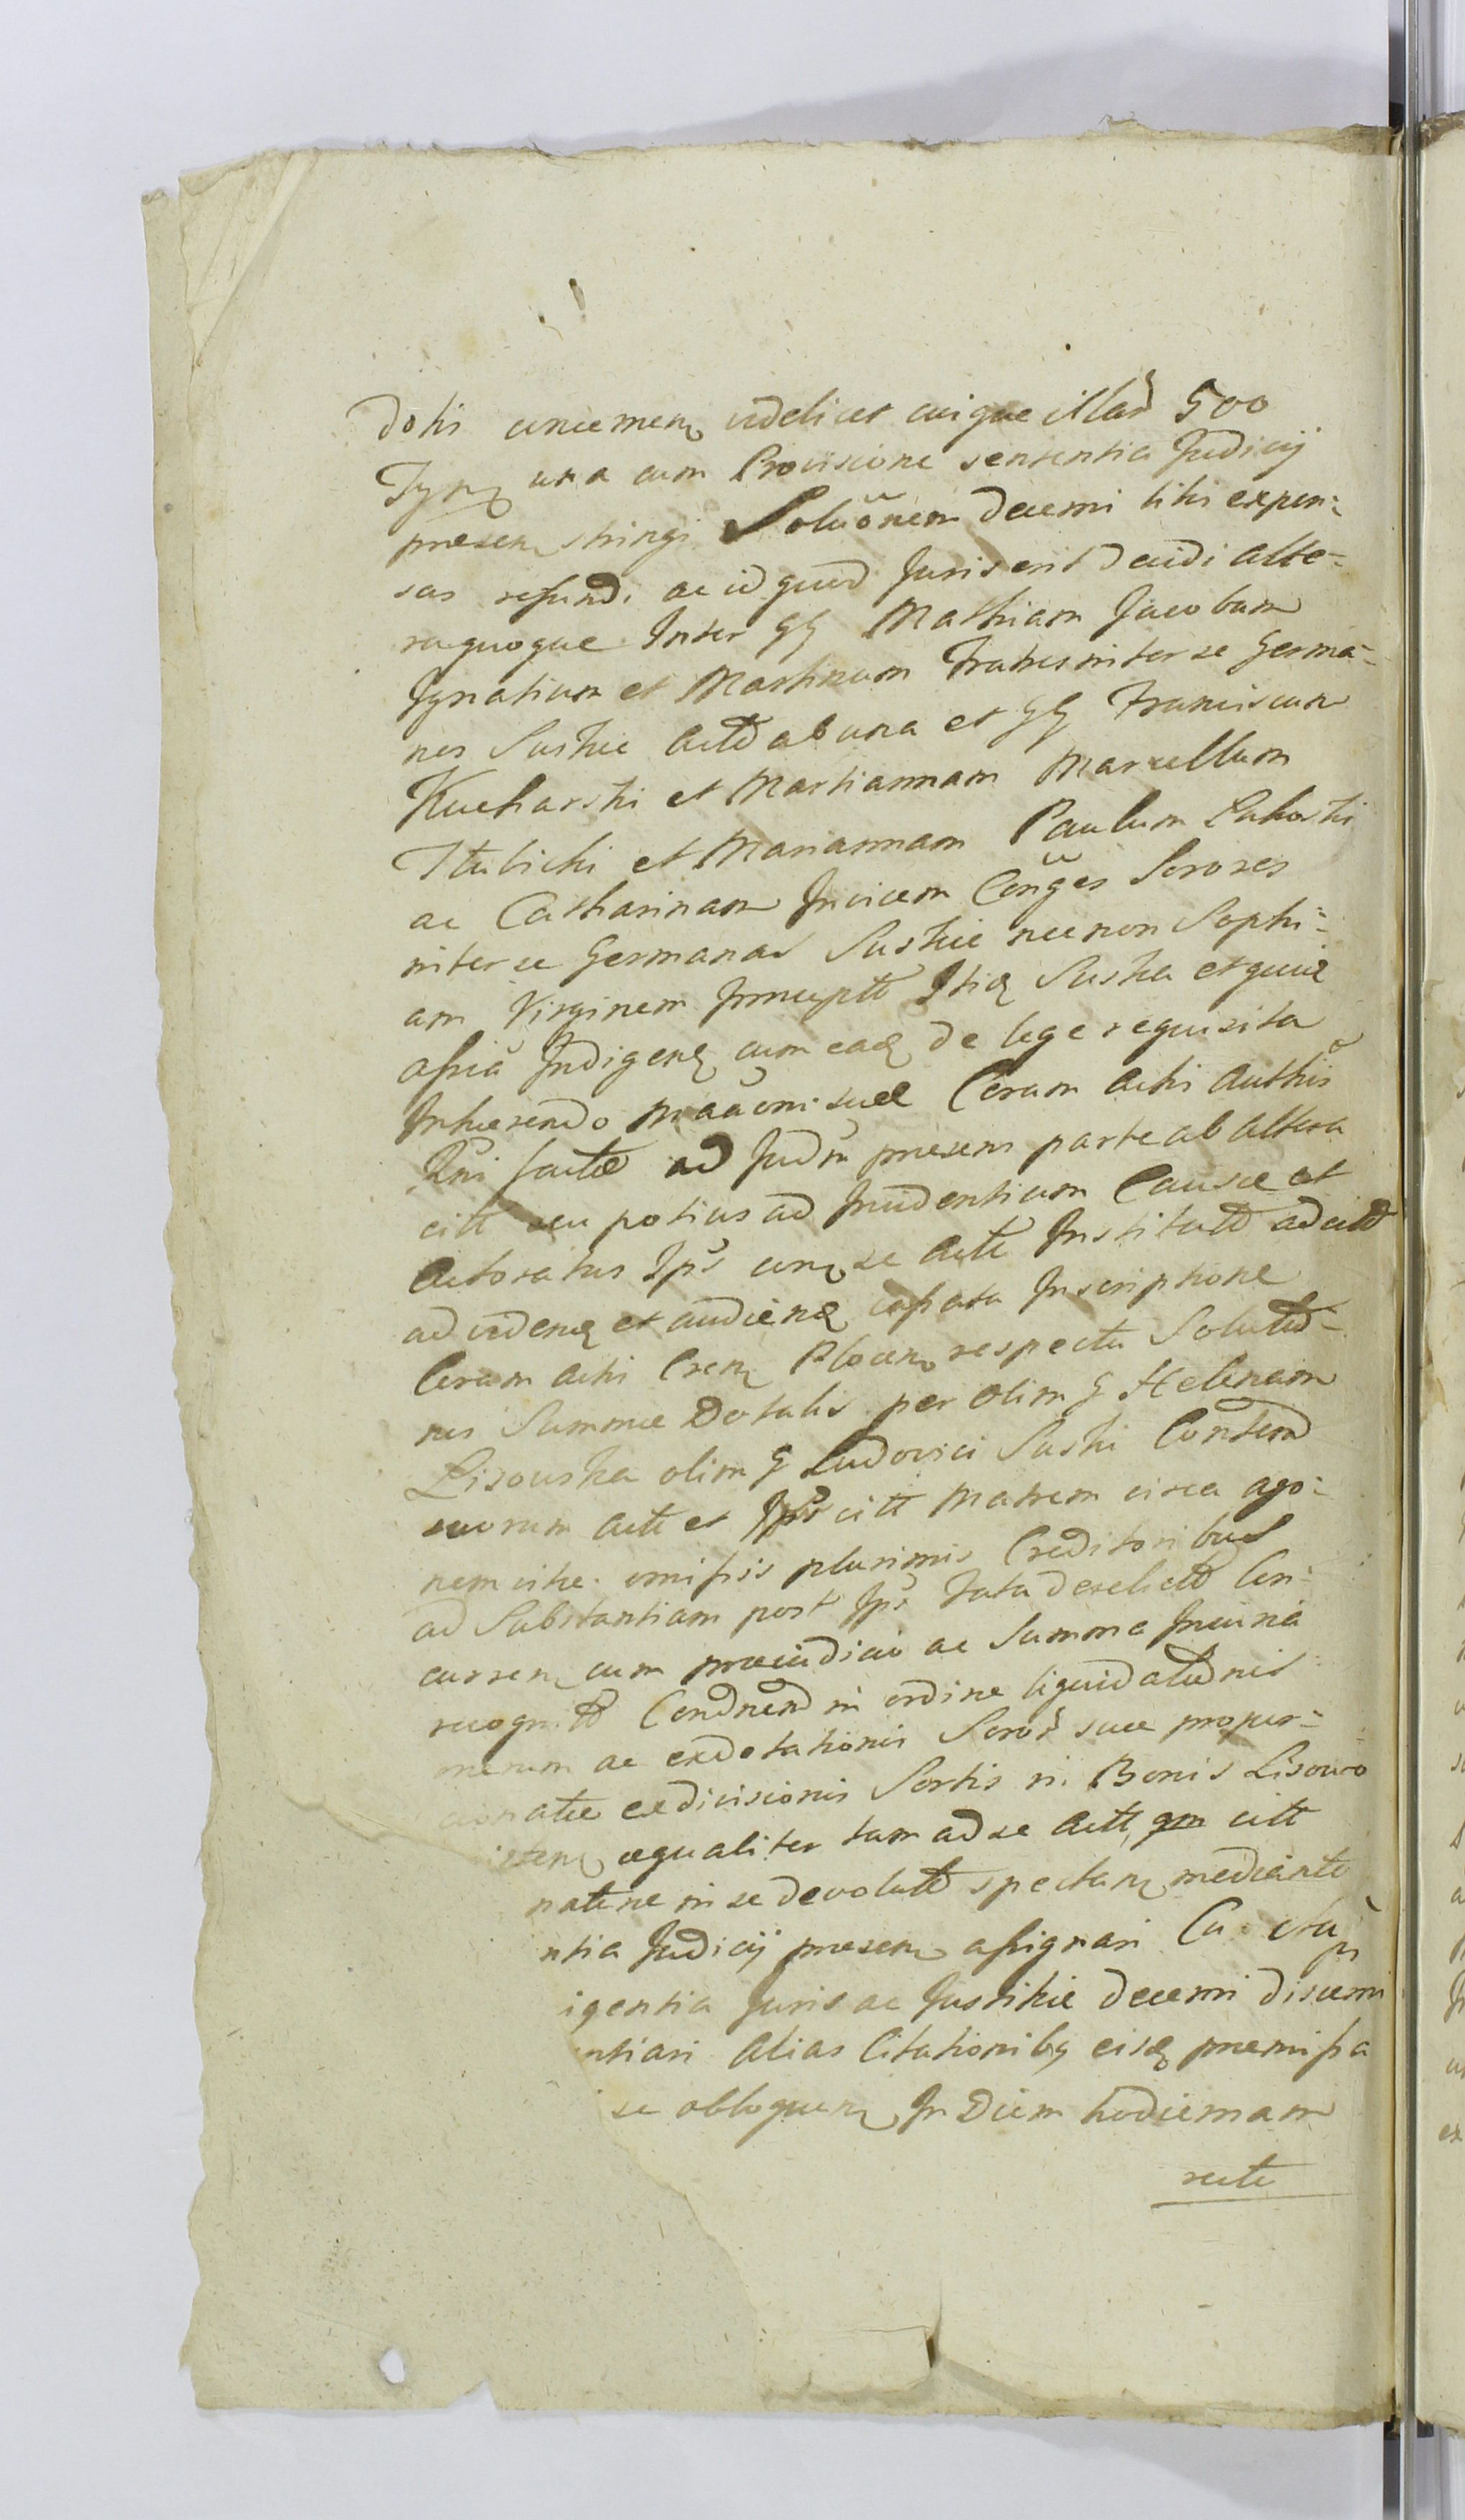 Dotis concernen videlicet cuique illarũ 500
Tynf una cum Provisione sententia Judicij
præsen stringi Soluõnem decerni litis expen:
sas refundi ac id quod Juris erit decidi Alte-
ra quoque Inter GG Mathiam Jacobum
Ignatium et Martinum Fratres inter se Germa-
nos Suskie Act ab una et GG Franciscum
Kucharski et Martiannam Marcellum
et Mariannam Paulum
ac Catharinam Invicem Conges Sorores
inter se Germanas Suskie necnon Sophi-
am Virginem Innuptt Suska et quæ
assia Indigen cum ead de lege requisita
Inhærendo suæ Coram Actis Authen
factæ ad Judm præsens parte ab altera
citt seu potius ad Incidentiam Causæ et
Actoratus Ips cum se Actt Institutt ad citt
ad viden et audien cassata Inscriptione
Coram Actis Cren Plocen respectu Solutio-
nis Summæ Dotalis per olim G Helenam
Lisowska olim G Ludovici Suski Consort
suorum Actt et Ips citt Matrem circa ago-
nem vitæ omissis plurimis Creditoribus
ad Substantiam post Ips Fata derelictt Con-
curren cum præiudicio ac Summa Iniuria
recognitt Condnend in ordine liquidationis
ac exdotationis Soror suæ
exdivisionis Sortis in Bonis Lisowo
æqualiter tam ad se Actt qm citt
in se devolutt spectan mediante
ntia Judicij præsen assignari Ca
igentia Juris ac Justitiæ decerni discerni
ntiari Alias Citationibg eisd præmissa
se obloquen In Diem hodiernam
recte